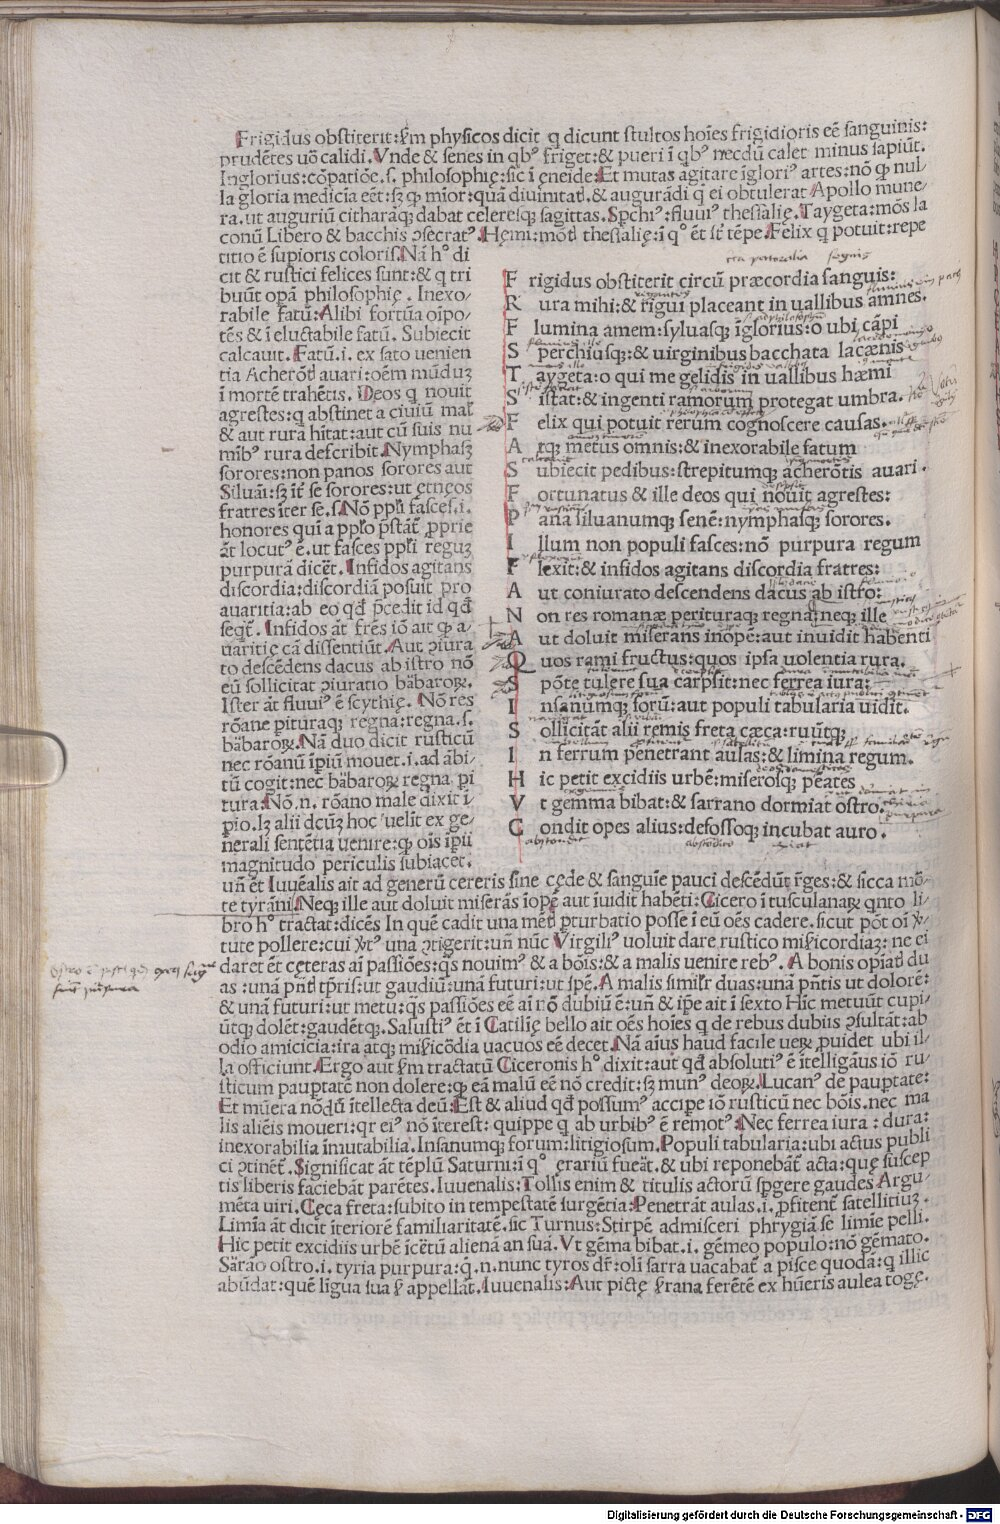 Frigidus obstiterit: ẜm physicos dicit q dicunt stultos hoīes frigidioris eē sanguinis:
prudētes uō calidi. Vnde & senes in qbꝰ friget: & pueri ī qbꝰ necdū calet minus sapiūt.
Inglorius: cōpatiōe .s. philosophię: sic ī ęneide. Et mutas agitare īgloriꝰ artes: nō ꝙ nul/
la gloria medicīa eēt: sꝫ ꝙ mīor: quā diuinitatꝭ. & augurādi q̄ ei obtulerat Apollo mune/
ra. ut auguriū citharāqꝫ dabat celeresqꝫ sagittas. Spchiꝰ: fluuiꝰ thessalię. Taygeta: mōs la
conū Libero & bacchis ↄsecratꝰ. Hęmi: mōtꝭ thessalię: ī qº ēt st̄ tēpe. Felix q potuit: repe
titio ē supioris coloris. Nā hº di
cit & rustici felices sunt: & q tri
buūt opā philosophię. Inexo/
rabile fatū: Alibi fortūa oīpo/
tēs & ī eluctabile fatū. Subiecit
calcauit. Fatū .i. ex fato uenien
tia Acherōtꝭ auari: oēm mūduꝫ
ī mortē trahētis. Deos q nouit
agrestes: q abstinet a ciuiū malꝭ
& aut rura hītat: aut cū suis nu
mībꝰ rura describit. Nymphasꝫ
sorores: non panos sorores aut
Siluāi: sꝫ īt̄ se sorores: ut ętnęos
fratres īter se .s. Nō ppl̄i fasces .i.
honores qui a pplo p̄stāt̄ pprie
āt locutꝰ ē. ut fasces ppl̄i reguꝫ
purpurā dicēt. Infidos agitans
discordia: discordiā posuit pro
auaritia: ab eo qd̄ p̄cedit id qd̄
seqt̄. Infidos āt frēs iō ait ꝙ a/
uaritię cā dissentiūt. Aut ↄiura
to descēdens dacus ab istro nō
eū sollicitat ↄiuratio bābaroꝝ.
Ister āt fluuiꝰ ē scythię. Nō res
rōane pituraqꝫ regna: regna .s.
bābaroꝝ. Nā duo dicit rusticū
nec rōanū īpiū mouet .i. ad ābi/
tū cogit: nec bābaroꝝ regna pi
tura: Nō .n. rōano male dixit ī/
pio. lꝫ alii dcūꝫ hoc uelit ex ge/
nerali sentētia uenire: ꝙ oīs īpii
magnitudo periculis subiacet.
F rigidus obstiterit circū præcordia sanguis:
R ura mihi: & rigui placeant in uallibus amnes.
F lumina amem: syluasqꝫ īglorius: o ubi cāpi
S perchiusqꝫ: & uirginibus bacchata lacænis
T aygeta: o qui me gelidis in uallibus hæmi
S istat: & ingenti ramorum protegat umbra.
F elix qui potuit rerum cognoscere causas.
A rqꝫ metus omnis: & inexorabile fatum
S ubiecit pedibus: strepitumqꝫ acherōtis auari.
F ortunatus & ille deos qui nouit agrestes:
P ana siluanumqꝫ senē: nymphasqꝫ sorores.
I llum non populi fasces: nō purpura regum
F lexit: & infidos agitans discordia fratres:
A ut coniurato descendens dacus ab istro:
N on res romanæ perituraqꝫ regna: neqꝫ ille
A ut doluit miserans inopē: aut inuidit habenti
Q uos rami fructus: quos ipsa uolentia rura.
S pōte tulere sua carpsit: nec ferrea iura:
I nsanumqꝫ forū: aut populi tabularia uidit.
S ollicitāt alii remis freta cæca: ruūtqꝫ
I n ferrum penetrant aulas: & limina regum.
H ic petit excidiis urbē: miserosqꝫ pēates
V t gemma bibat: & sarrano dormiat ostro.
C ondit opes alius: defossoqꝫ incubat auro.
uñ ēt Iuuēalis ait ad generū cereris sine cęde & sanguīe pauci descēdūt r̄ges: & sicca mō/
te tyrāni. Neqꝫ ille aut doluit miserās iopē aut īuidit habēti: Cicero ī tusculanaꝝ qnto li/
bro hº tractat: dicēs In quē cadit una mētꝭ pturbatio posse ī eū oēs cadere. sicut pōt oī v̄r/
tute pollere: cui v̄rtꝰ una ↄtigerit: uñ nūc Virgiliꝰ uoluit dare rustico mīsericordiaꝫ: ne ei
daret ēt cęteras aī passiōes: qs̄ nouimꝰ & a bōis: & a malis uenire rebꝰ. A bonis opīatꝭ du
as: unā pn̄tꝭ tp̄ris: ut gaudiū: unā futuri: ut spē. A malis similr̄ duas: unā pn̄tis ut dolorē:
& unā futuri: ut metu: qs̄ passiōes eē aī nō dubiū ē: uñ & ip̄e ait ī sexto Hīc metuūt cupi/
ūtqꝫ dolēt: gaudētqꝫ. Salustiꝰ ēt ī Catilię bello ait oēs hoīes q de rebus dubiis ↄsultāt: ab
odio amicicia: ira atqꝫ mīsericōdia uacuos eē decet. Nā aīus haud facile ueꝝ puidet ubi il/
la officiunt. Ergo aut ẜm tractatū Ciceronis hº dixit: aut qd̄ absolutiꝰ ē ītelligāus iō ru/
sticum pauptatē non dolere: ꝙ eā malū eē nō credit: sꝫ munꝰ deoꝝ. Lucanꝰ de pauptate:
Et mūera nōdū ītellecta deū: Est & aliud qd̄ possumꝰ accipe iō rusticū nec bōis. nec ma
lis aliēis moueri: qr eiꝰ nō īterest: quippe q ab urbibꝰ ē remotꝰ: Nec ferrea iura: dura:
inexorabilia īmutabilia. Insanumqꝫ forum: litigiosum. Populi tabularia: ubi actus publi
ci ↄtinēt̄. Significat āt tēplū Saturni: ī qº ęrariū fueāt. & ubi reponebāt̄ acta: quę suscep
tis liberis faciebāt parētes. Iuuenalis: Tollis enim & titulis actorū spgere gaudes Argu/
mēta uiri. Cęca freta: subito in tempestatē surgētia: Penetrāt aulas .i. pfitent̄ satellitiuꝫ.
Limīa āt dicit īteriorē familiaritatē. sic Turnus: Stirpē admisceri phrygiā se limīe pelli.
Hic petit excidiis urbē īcētū alienā an suā. Vt gēma bibat .i. gēmeo populo: nō gēmato.
Sārāo ostro .i. tyria purpura: q̄ .n. nunc tyros dr̄: oli sarra uacabat̄ a pisce quodā: q illic
abūdat: quē līgua sua ẜ appellāt. Iuuenalis: Aut pictę ẜrana ferētē ex hūeris aulea togę.
Digitalisierung gefördert durch die Deutsche Forschungsgemeinschaft - DFG